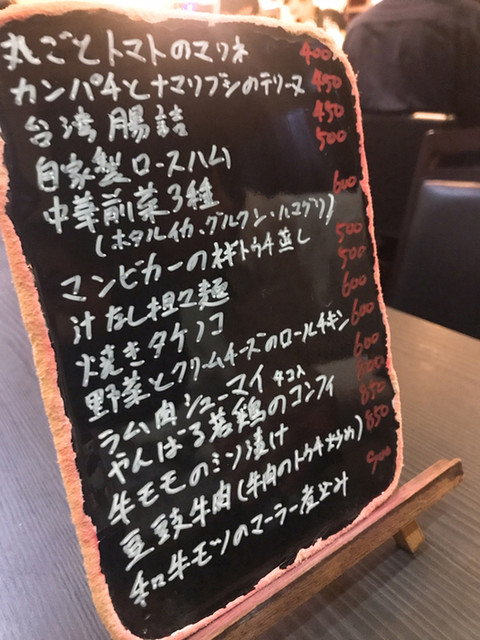 丸ごとトマトのマリネ 400
カンパチとナマリブシのテリーヌ 450
台湾腸詰 450
自家製ロースハム 500
中華前菜3種 600
(ホタルイカ、グルクン、ハマグリ)
マンビカーの梅トウチ蒸し 500
汁なし担々麺 500
焼きタケノコ 600
野菜とクリームチーズのロールチキン 600
ラム肉シューマイ 4コ入 600
やんばる若鶏のコンフィ 800
牛モモのミソ漬け 850
豆豉牛肉(牛肉のトウチ炒め) 850
和牛モツのマーラー煮込み 900